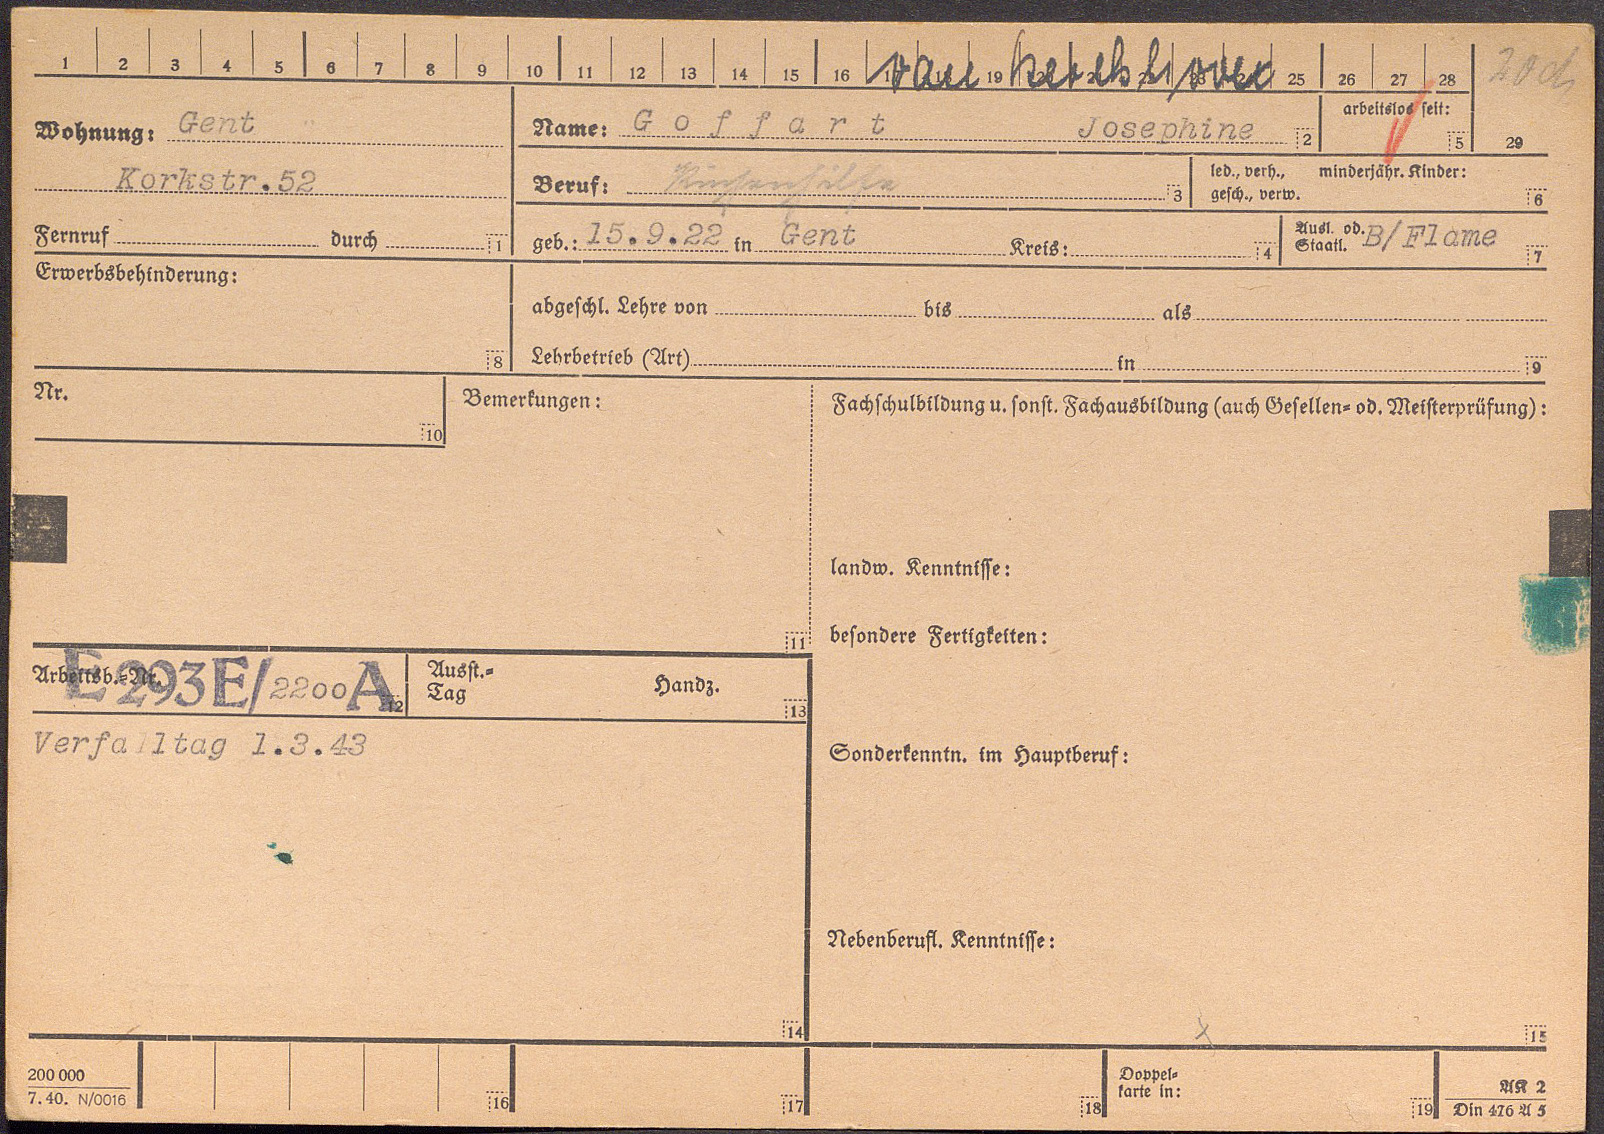 1 2 3 4 5 6 7 8 9 10 11 12 13 14 15 16 19 25 26 27 28
van 20d
Wohnung: Gent
Name: Goffart Josephine 2
arbeitslos seit: 5 29
Korkstr.52
Beruf: Küchenhilfe 3
led., verh., minderjähr. Kinder:
gesch., verw. 6
Fernruf durch 1
geb.: 15.9.22 in Gent Kreis: 4
Ausl. od. B/Flame
Staatl. 7
Erwerbsbehinderung: 8
abgeschl. Lehre von bis als
Lehrbetrieb (Art) in 9
Nr. 10
Bemerkungen: 11
Fachschulbildung u. sonst. Fachausbildung (auch Gesellen- od. Meisterprüfung):
landw. Kenntnisse:
besondere Fertigkeiten:
Arbeitsb.-Nr. E 293E/2200A 12
Ausst.-
Tag Handz. 13
Verfalltag 1.3.43
Sonderkenntn. im Hauptberuf:
Nebenberufl. Kenntnisse:
14 15
200 000
7.40. N/0016
16 17 18
Doppel-
karte in: 19
AK 2
Din 476 A 5